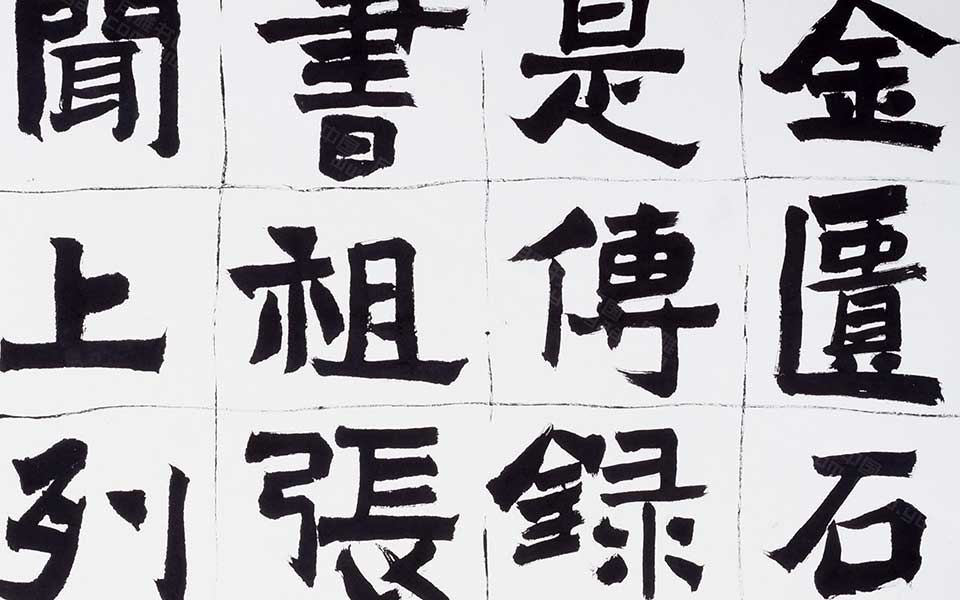 金匱石
是傳録
書祖張
聞上列